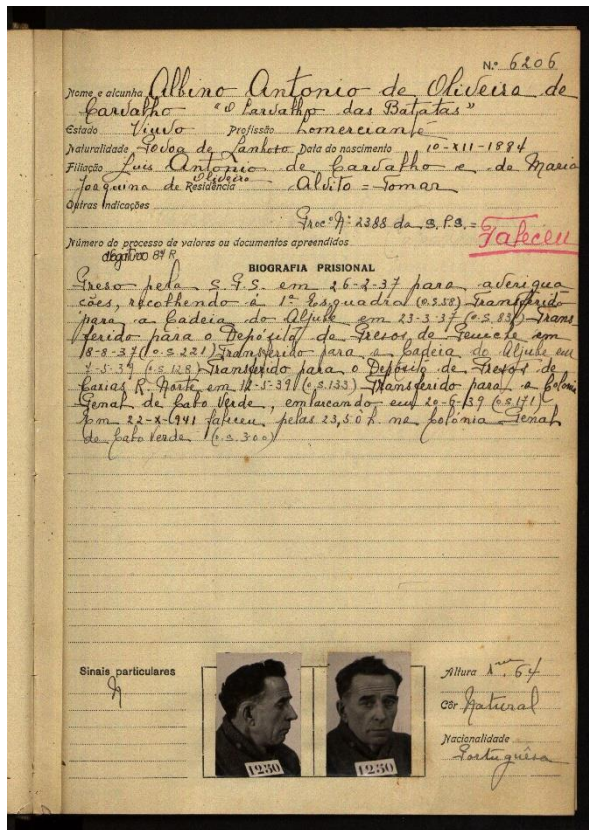 N.º 6206
Nome e alcunha Albino Antonio de Oliveira de
Carvalho "O Carvalho das Batatas"
Estado Viuvo Profissão Comerciante
Naturalidade Povoa de Lanhoso Data do nascimento 10-XII-1884
Filiação Luis Antonio de Carvalho e de Maria
Joaquina de Oliveira Residência Alvito = Tomar
Outras indicações
Procº Nº 2388 da S.P.S. =
Faleceu
Número do processo de valores ou documentos apreendidos
Negativo 84 R
BIOGRAFIA PRISIONAL
Preso pela S.P.S. em 26-2-37 para averigua
ções, recolhendo à 1ª Esquadra (O.S.58) Transferido
para a Cadeia do Aljube em 23-3-37 (O.S.83) Trans
ferido para o Depósito de Presos de Peniche em
18-8-37 (O.S.221) Transferido para a Cadeia do Aljube em
7-5-39 (O.S.128) Transferido para o Depósito de Presos de
Caxias R. Norte em 12-5-39 (O.S.133) Transferido para a Colonia
Penal de Cabo Verde, embarcando em 20-6-39 (O.S.171)
Em 22-X-941 faleceu pelas 23,50 h. na Colónia Penal
de Cabo Verde (O.S.300)
Sinais particulares
N
1250
1250
Altura 1m,64
Côr Natural
Nacionalidade
Portuguêsa